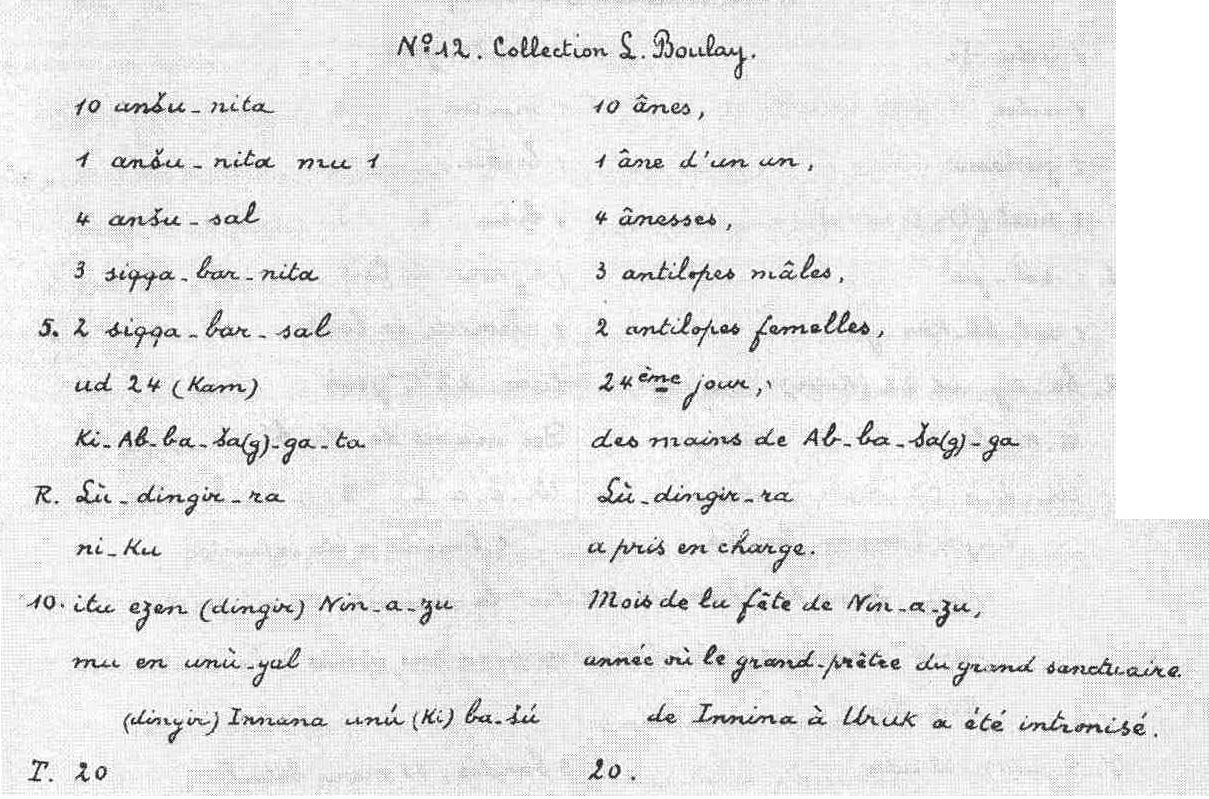 Nº 12. Collection L. Boulay.
10 anšu-nita 10 ânes,
1 anšu-nita mu 1 1 âne d'un un,
4 anšu-sal 4 ânesses,
3 sigga-bar-nita 3 antilopes mâles,
5. 2 sigga-bar-sal 2 antilopes femelles,
ud 24 (Kam) 24ème jour,
Ki-Ab-ba-ša(g)-ga-ta des mains de Ab-ba-ša(g)-ga
R. Lù-dingir-ra Lù-dingir-ra
ni-Ku a pris en charge.
10. itu ezen (dingir) Nin-a-zu Mois de la fête de Nin-a-zu,
mu en unù-gal année où le grand-prêtre du grand sanctuaire
(dingir) Innana unú (Ki) ba-šú de Innina à Uruk a été intronisé.
T. 20 20.